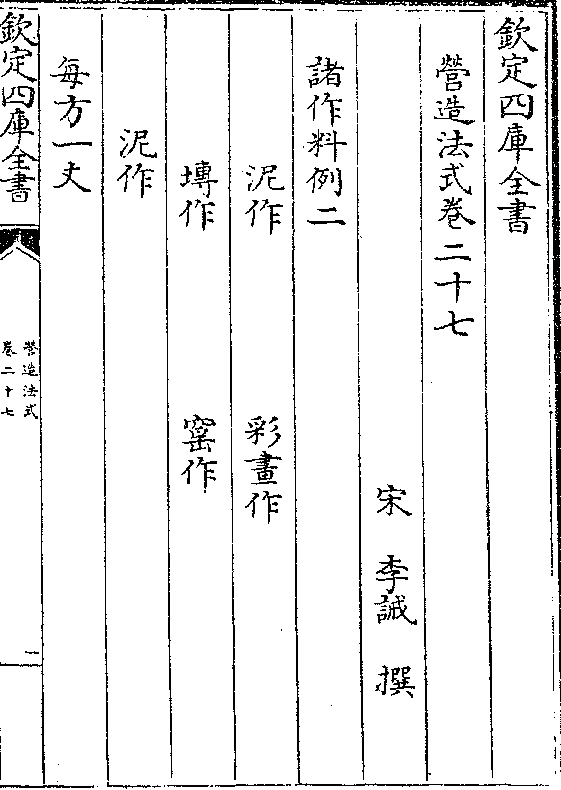 欽定四庫全書
營造法式卷二十七
宋 李誡 撰
諸作料例二
泥作 彩畫作
塼作 窯作
泥作
每方一丈
欽定四庫全書
營造法式
卷二十七
一